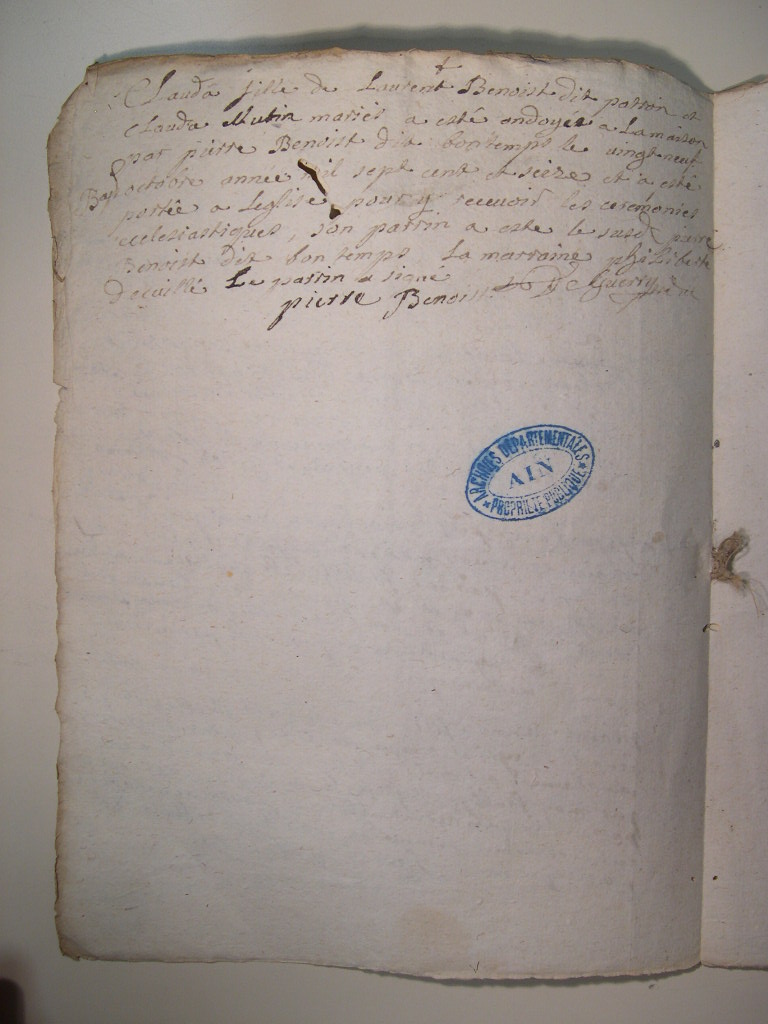 Clauda fille de Laurent Benoist dit patron et
Clauda Mutin mariés a esté ondoyee a La maison
par pierre Benoist dit bontemps le vingt neuf
Bap octobre annee mil sept cent et seize et a esté
portée a Leglise pour y recevoir les ceremonies
ecclesiastiques, son parrin a este le susd pierre
Benoist dit bon temps La marraine philiberte
Le parrin a signé
pierre Benoist Guerry
ARCHIVES DÉPARTEMENTALES
AIN
PROPRIÉTÉ PUBLIQUE